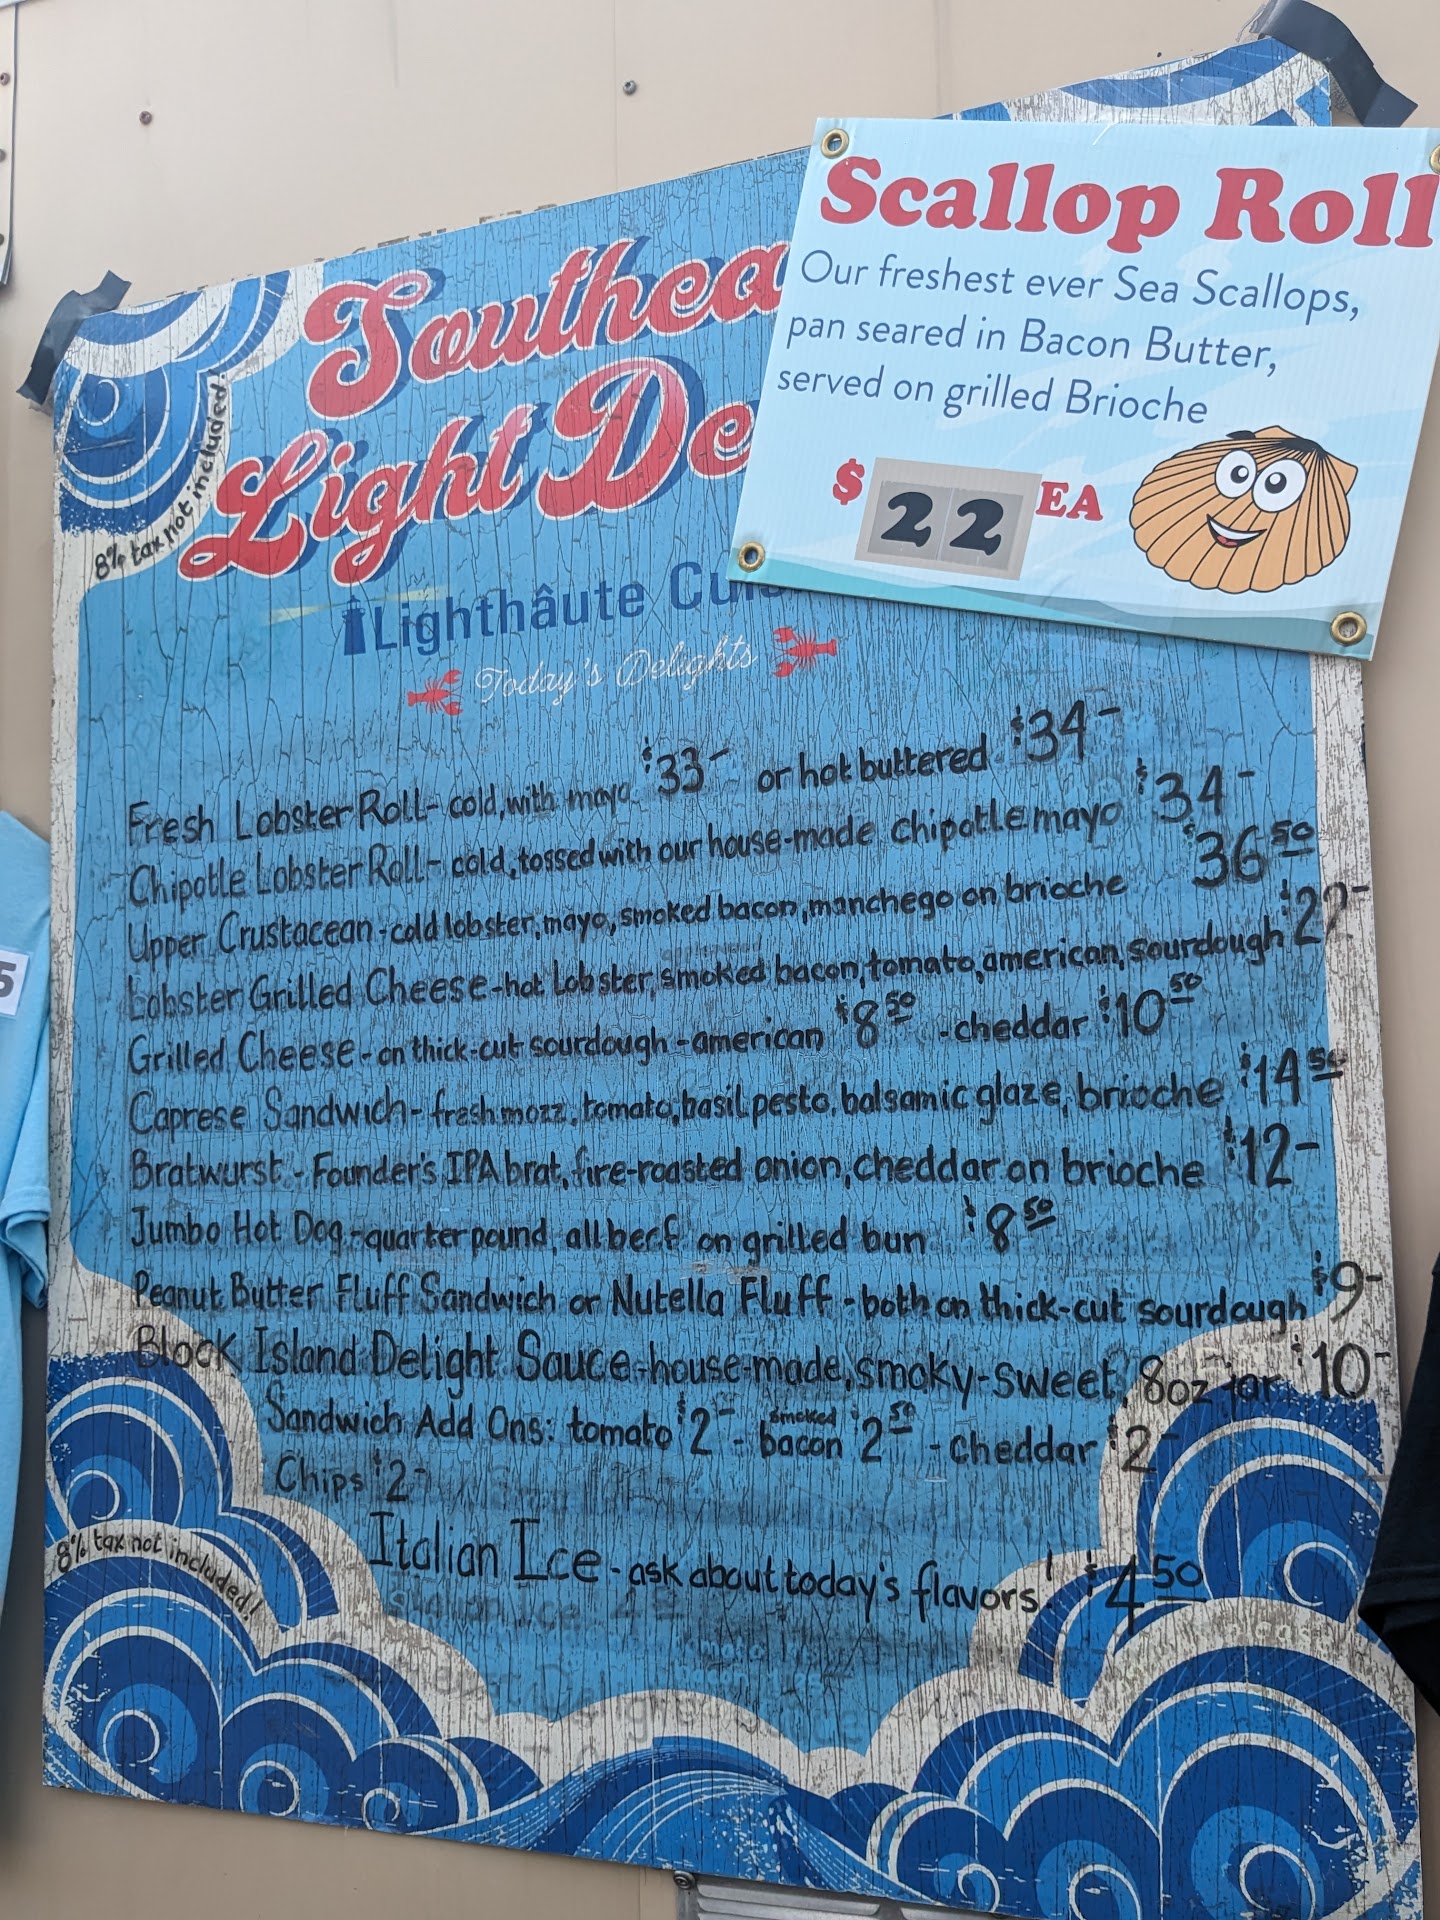 Scallop Roll
Our freshest ever Sea Scallops,
pan seared in Bacon Butter,
served on grilled Brioche
$22 EA
Southea
Light De
8% tax not included!
Lighthâute Cuis
Today's Delights
Fresh Lobster Roll- cold, with mayo $33- or hot buttered $34-
Chipotle Lobster Roll- cold, tossed with our house-made chipotle mayo $34-
Upper Crustacean - cold lobster, mayo, smoked bacon, manchego on brioche $36 50
Lobster Grilled Cheese - hot lobster, smoked bacon, tomato, american, sourdough
Grilled Cheese - on thick-cut sourdough - american $8 50 - cheddar $10 50
Caprese Sandwich - fresh mozz, tomato, basil pesto, balsamic glaze, brioche $14 50
Bratwurst - Founder's IPA brat, fire-roasted onion, cheddar on brioche $12-
Jumbo Hot Dog - quarter pound, all beef on grilled bun $8 50
Peanut Butter Fluff Sandwich or Nutella Fluff - both on thick-cut sourdough $9-
Block Island Delight Sauce - house-made, smoky-sweet, 8oz jar $10-
Sandwich Add Ons: tomato $2- - smoked bacon $2 50 - cheddar $2-
Chips $2-
Italian Ice - ask about today's flavors! $4 50
8% tax not included!
5